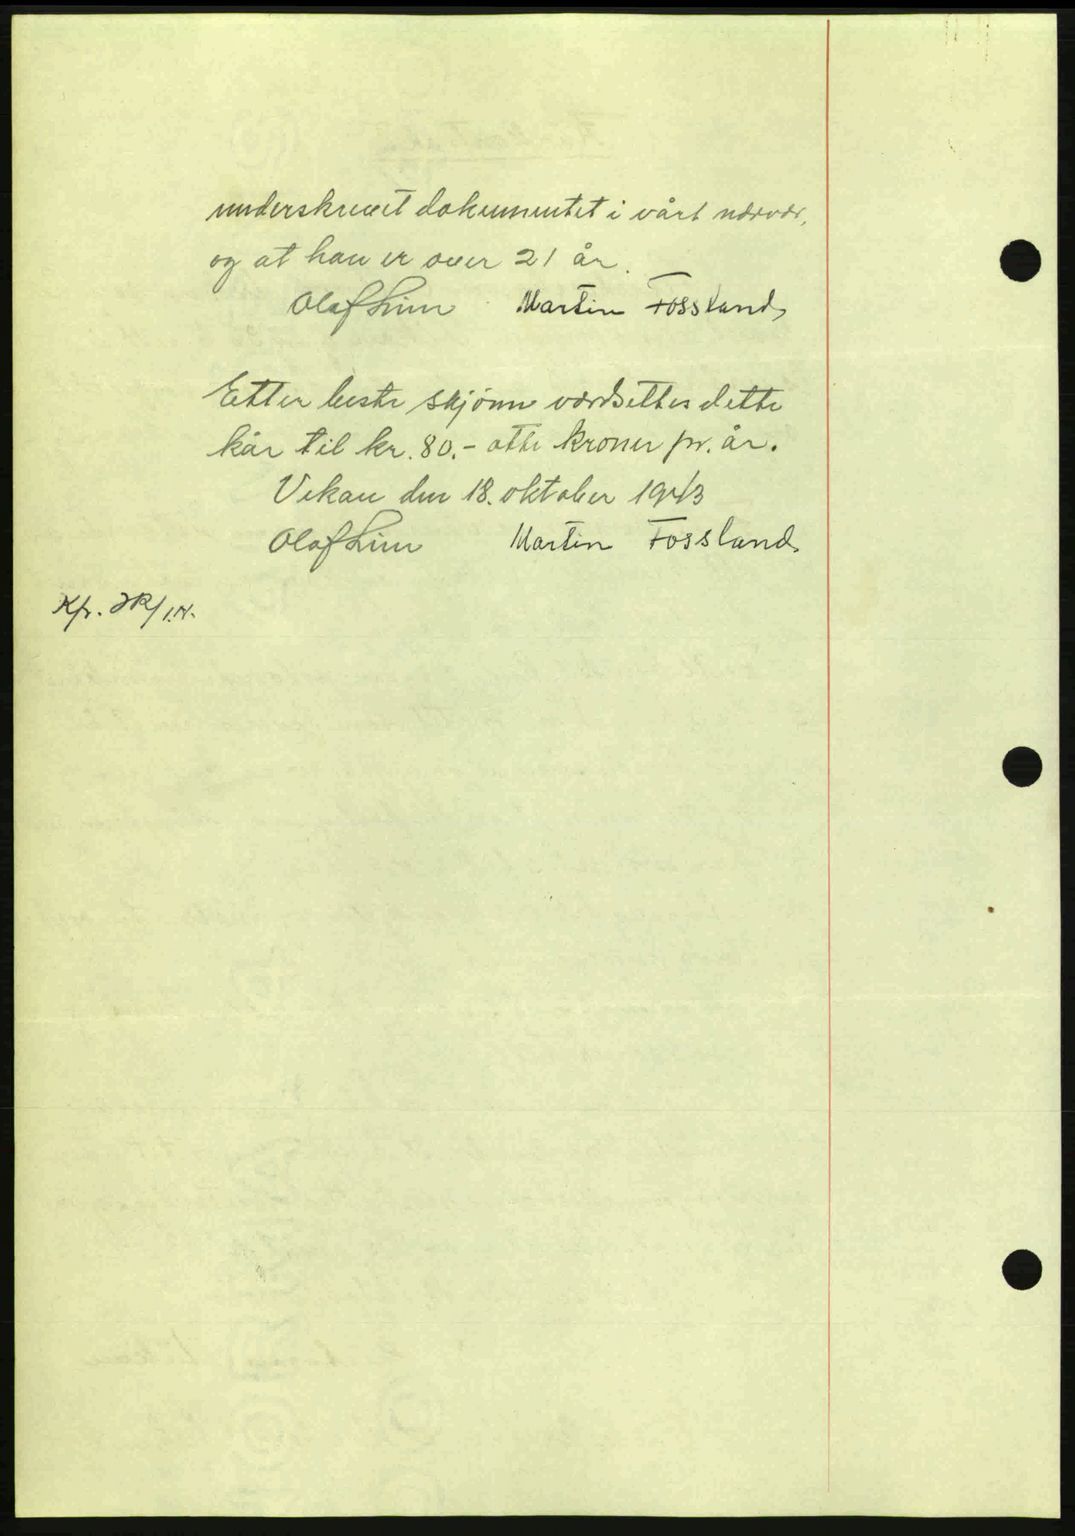 underskrevet dokumentet i vårt nærvær,
og at han er over 21 år.
Olaf Lium Martin Fossland
Etter beste skjønn verdsettes dette
kår til kr. 80.- otti kroner pr. år.
Vikan den 18. oktober 1943
Olaf Lium Martin Fossland
Kfr.